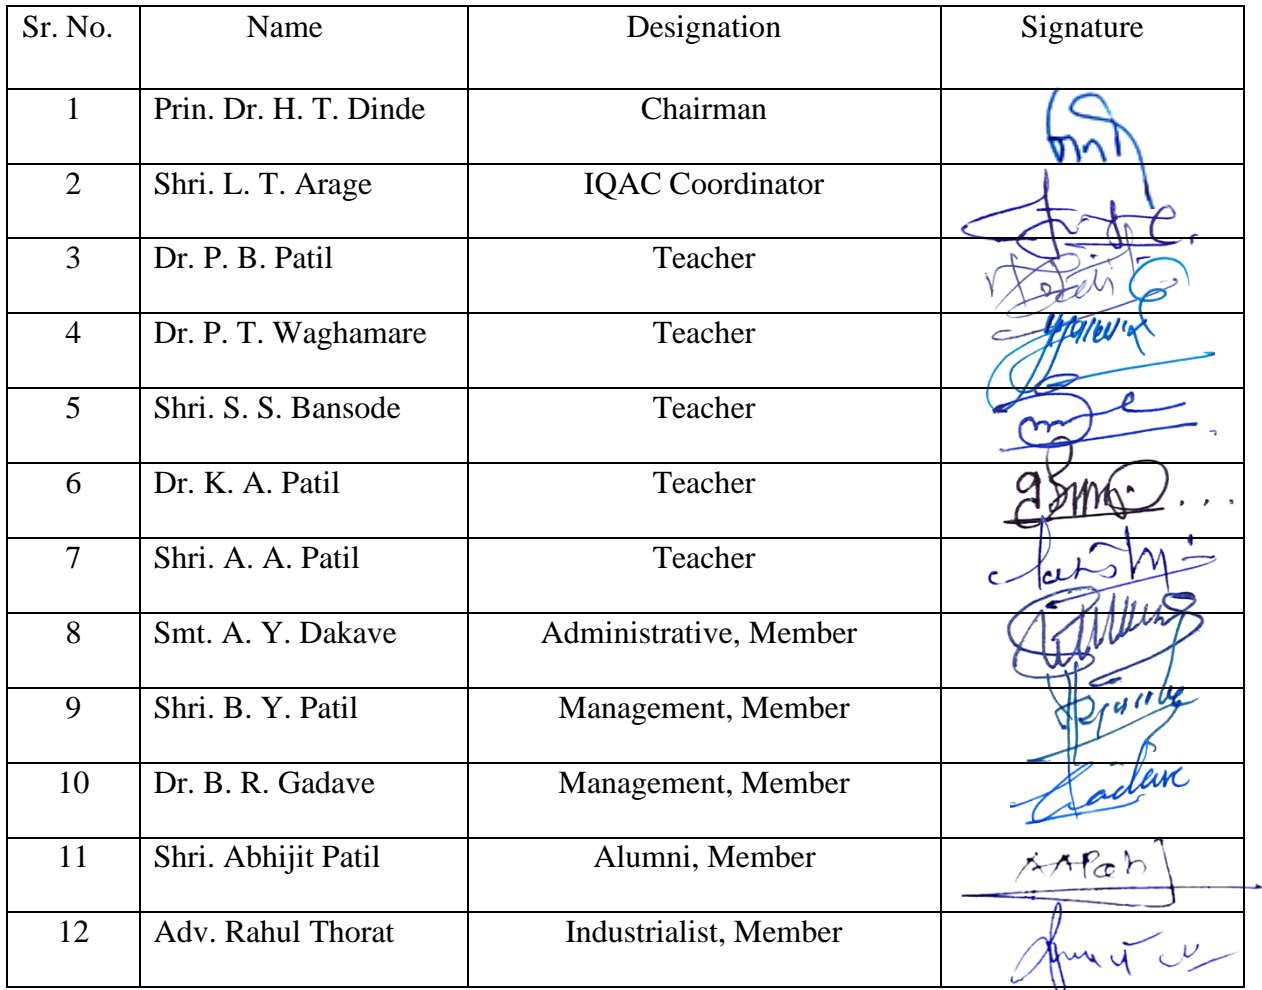 Sr. No. Name Designation Signature
1 Prin. Dr. H. T. Dinde Chairman
2 Shri. L. T. Arage IQAC Coordinator
3 Dr. P. B. Patil Teacher
4 Dr. P. T. Waghamare Teacher
5 Shri. S. S. Bansode Teacher
6 Dr. K. A. Patil Teacher
7 Shri. A. A. Patil Teacher
8 Smt. A. Y. Dakave Administrative, Member
9 Shri. B. Y. Patil Management, Member
10 Dr. B. R. Gadave Management, Member
11 Shri. Abhijit Patil Alumni, Member
12 Adv. Rahul Thorat Industrialist, Member